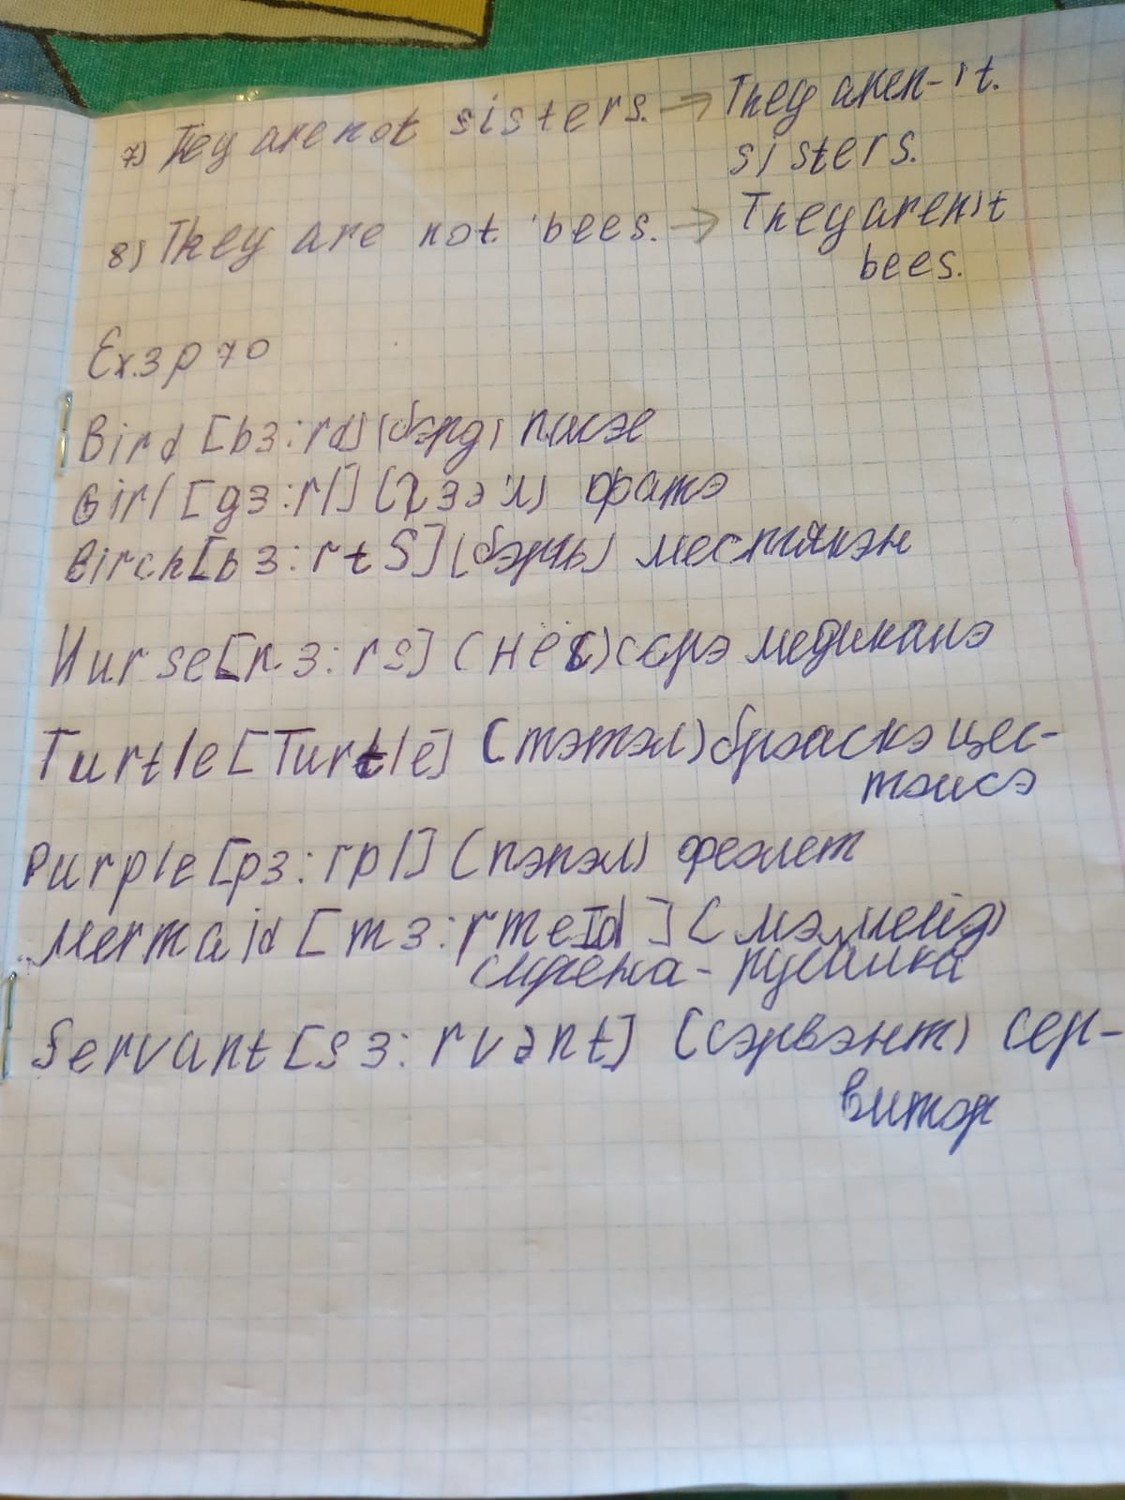 7) They are not sisters. → They aren-it.
sisters.
8) They are not bees. → They aren't
bees.
Ex.3 p 70
Bird [bɜ:rd] (бэрд) пасэре
Girl [gɜ:rl] (гээ'л) фатэ
Birch [bɜ:rtS] (бэрчь) местякэн
Nurse [nɜ:rs] (нёс) сорэ медикалэ
Turtle [Turtle] (тэтэл) броаскэ цес-
тоасэ
Purple [pɜ:rpl] (пэпэл) фиолет
Mermaid [mɜ:rmeId] (мэмейд)
сирена - русалка
Servant [sɜ:rvənt] (сэрвэнт) сер-
витор